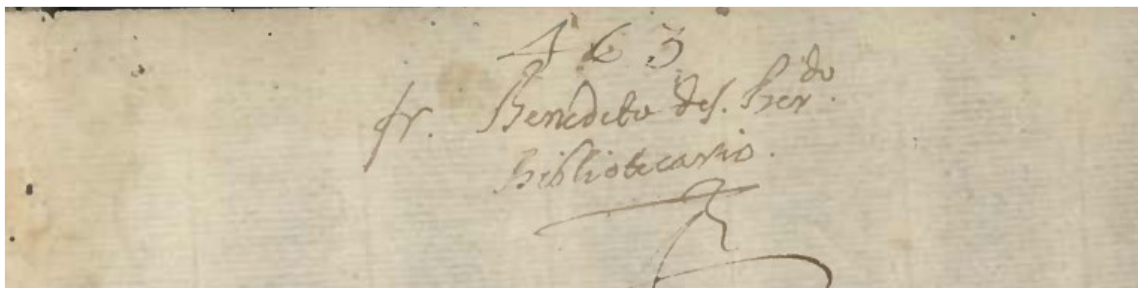 463
fr. Benedeto des. Ber.do
Bibliotecario.